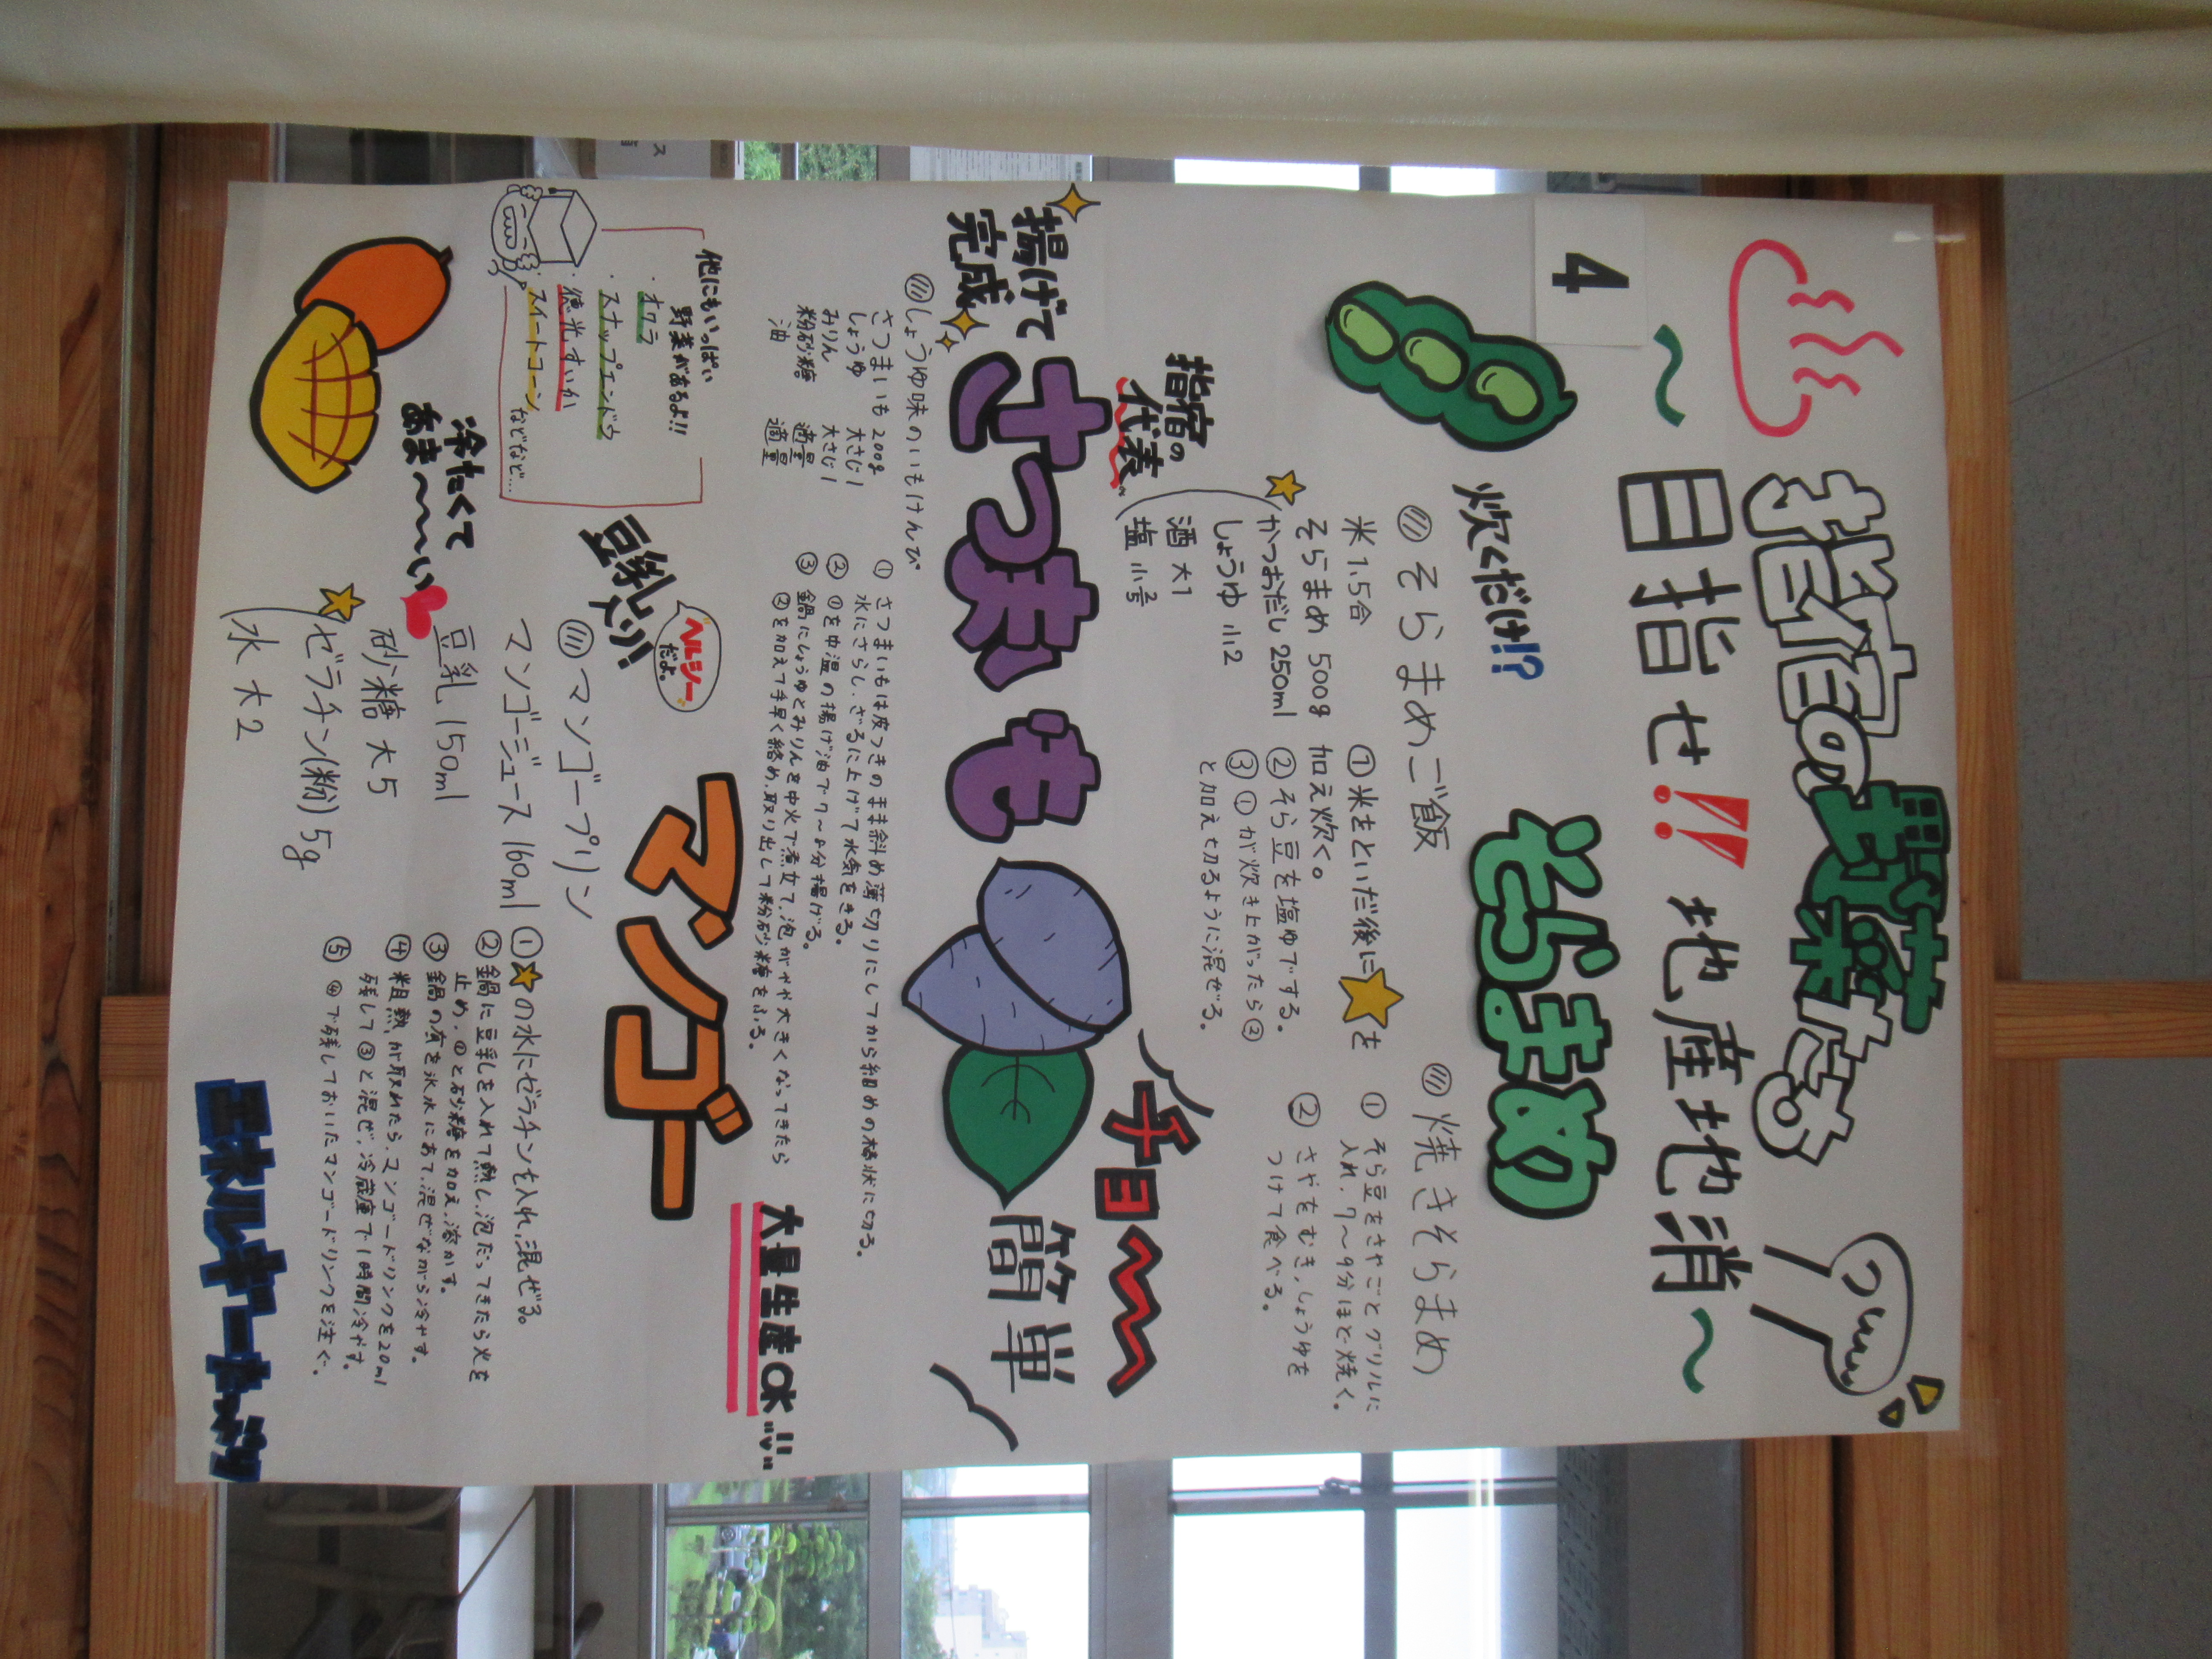 指宿の野菜たち
～目指せ!!地産地消～
4
炊くだけ!?
そらまめ
そらまめご飯
米 1.5合
そらまめ 500g
かつおだし 250ml
しょうゆ 小2
酒 大1
塩 小2/3
①米をといだ後に★を
加え炊く。
②そら豆を塩ゆでする。
③①が炊き上がったら②
と加え切るように混ぜる。
焼きそらまめ
① そら豆をさやごとグリルに
入れ、7～9分ほど焼く。
② さやをむき、しょうゆを
つけて食べる。
指宿の
代表
揚げて
完成
さつまいも
チョ～
簡単
しょうゆ味のいもけんぴ
さつまいも 200g
しょうゆ 大さじ1
みりん 大さじ1
粉砂糖 適量
油 適量
① さつまいもは皮つきのまま斜め薄切りにしてから細めの棒状に切る。
水にさらし、ざるに上げて水気をきる。
② ①を中温の揚げ油で7～8分揚げる。
③ 鍋にしょうゆとみりんを中火で煮立て、泡がやや大きくなってきたら
②を加えて手早く絡め、取り出して粉砂糖をふる。
他にもいっぱい
野菜があるよ!!
・オクラ
・スナップエンドウ
・徳光すいか
・スイートコーン
などなど…
豆乳たっぷり!
ヘルシー
だよ。
マンゴー
大量生産OK!!
冷たくて
あま～～い
マンゴープリン
マンゴージュース 160ml
豆乳 150ml
砂糖 大5
ゼラチン(粉) 5g
水 大2
①★の水にゼラチンを入れ、混ぜる。
②鍋に豆乳を入れて熱し、泡だってきたら火を
止め、①と砂糖を加え、溶かす。
③鍋の底を氷水にあて、混ぜながら冷やす。
④粗熱が取れたら、マンゴードリンクを20ml
残して③と混ぜ、冷蔵庫で1時間冷やす。
⑤④で残しておいたマンゴードリンクを注ぐ。
エネルギーキャベツ